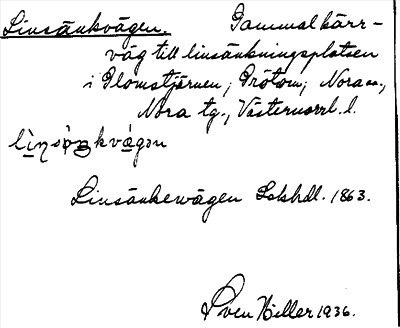 Linsänkvägen. Gammal kärr-
väg till linsänkningsplatsen
i Blomstjärnen, Prötom, Nora sn.,
Nora tg., Västernorrl. l.
Linsänkevägen Lskhdl. 1863.
Sven Hiller 1936.